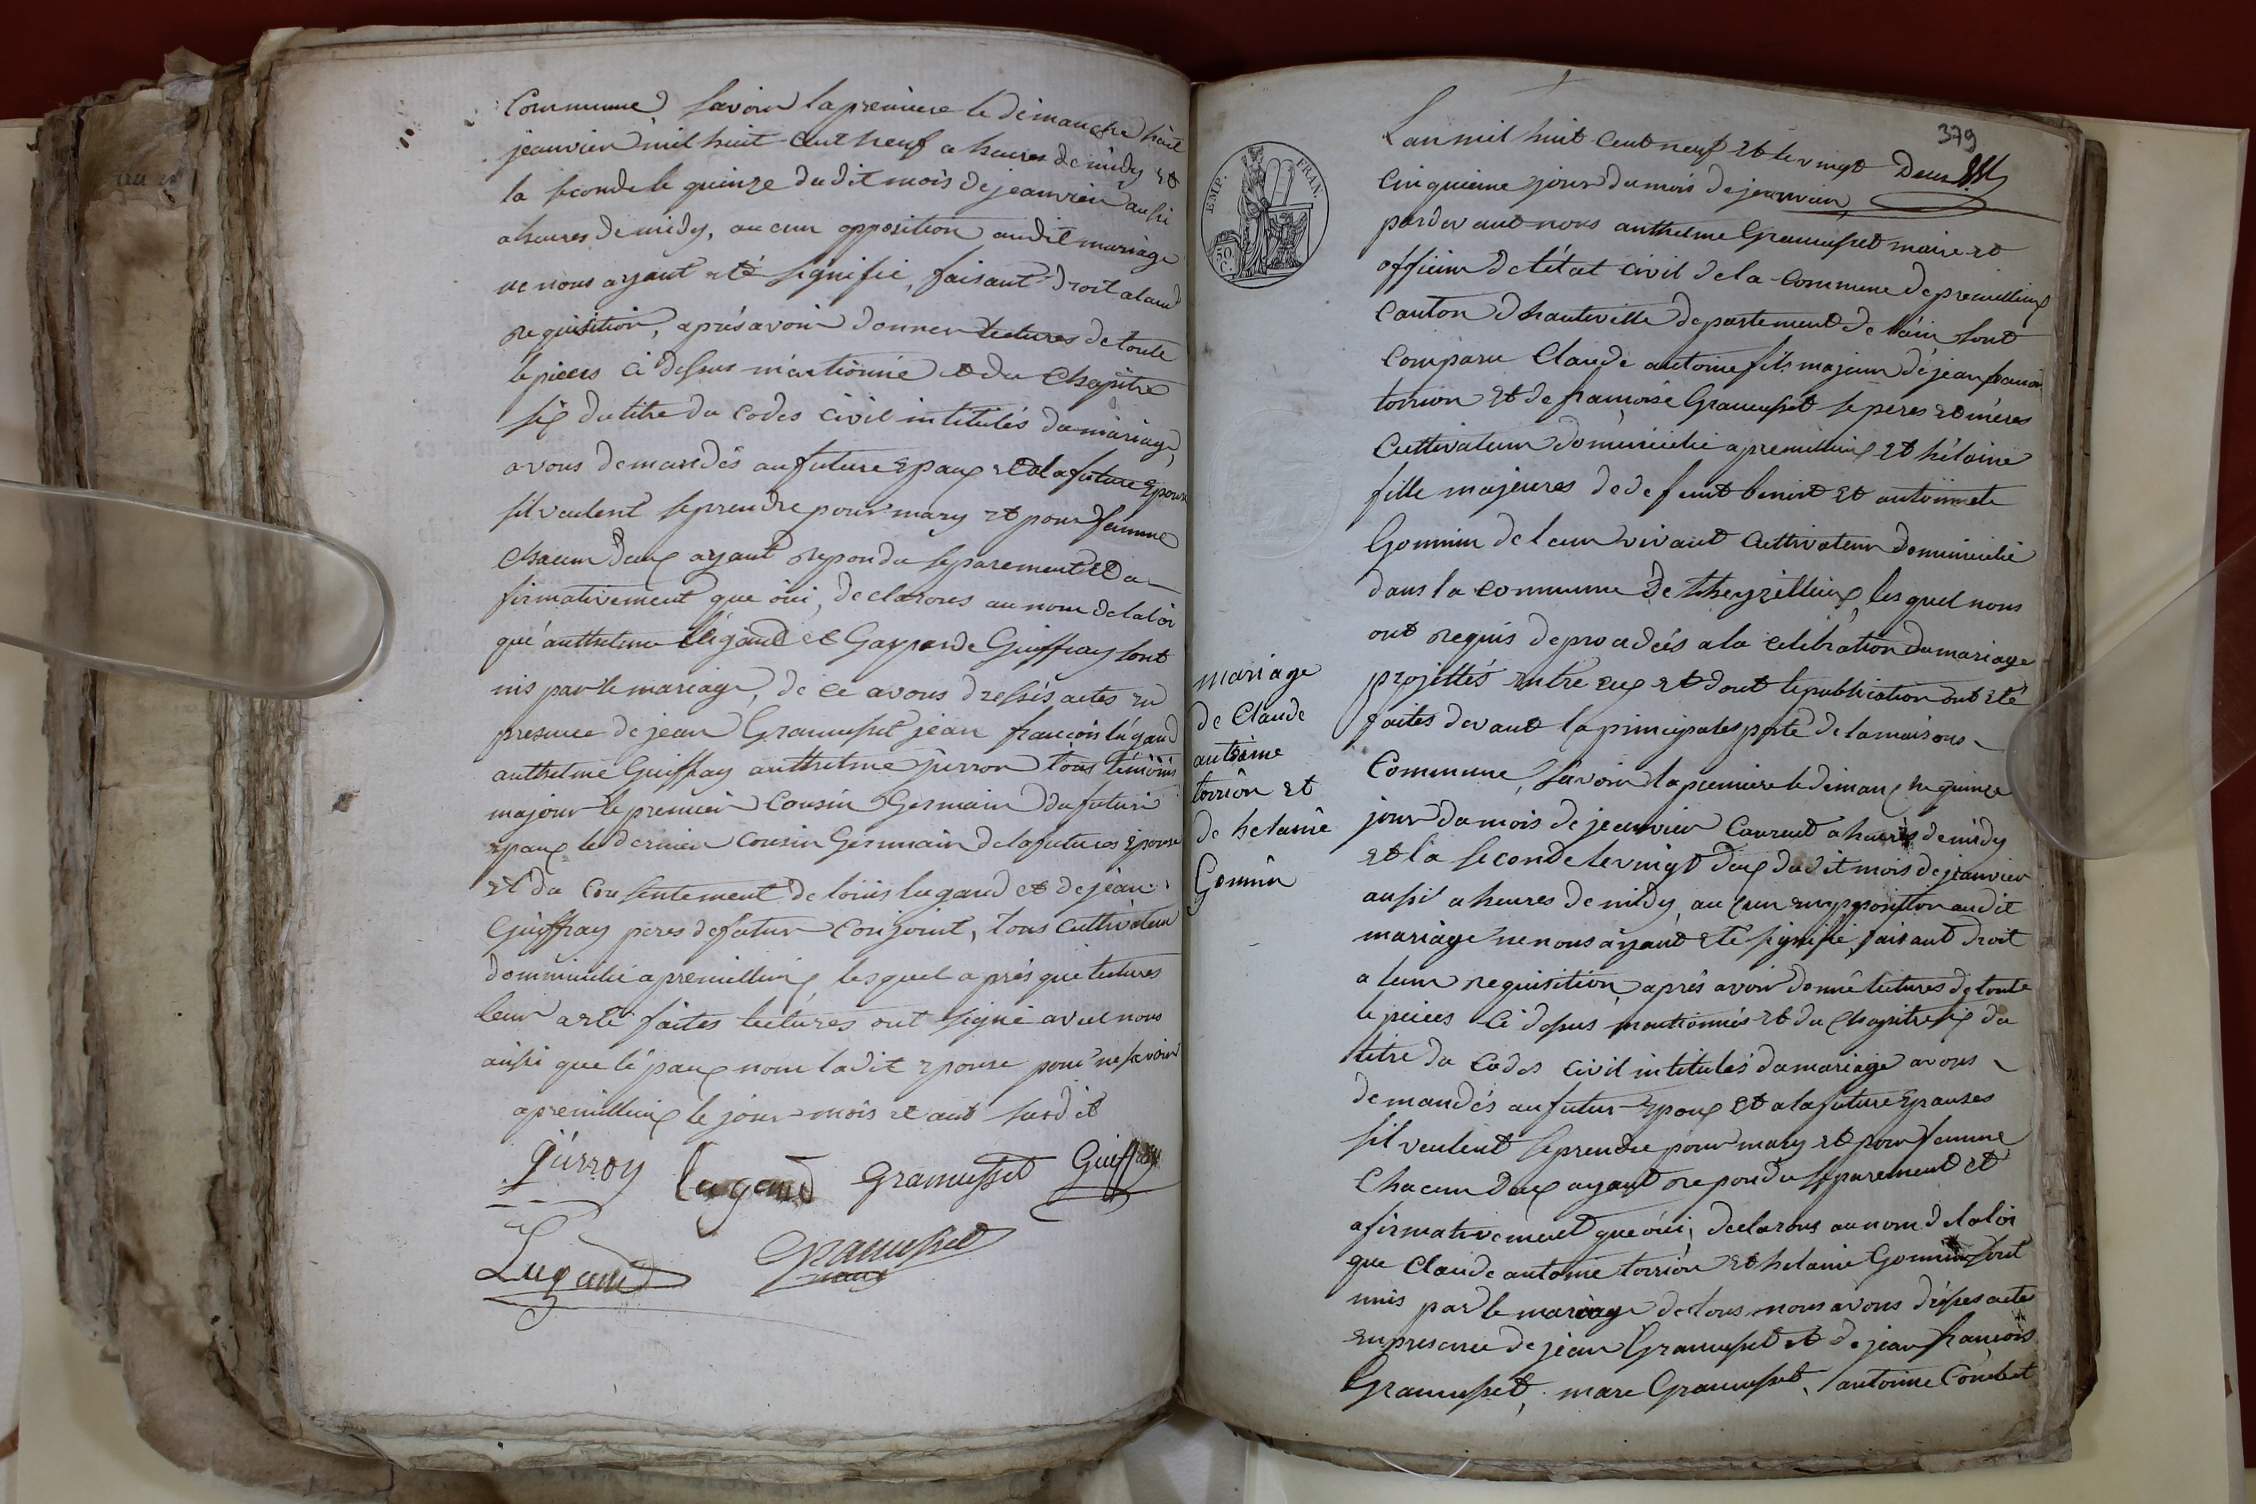 Commune, savoir la premiere le dimanche huit
jeanvier mil huit cent neuf a heures de midy et
la seconde le quinze du dit mois de jeanvier aussi
a heures de midy, aucun opposition audit mariage
ne nous ayant eté signifié, faisant droit a leur
requisition, aprés avoir donner lectures de toute
le pieces ci dessus mentionné et du chapitre
six du titre du codes civil intitulés du mariage,
avons demandés au future epoux et a la future epouse
sil veulent se prendre pour mary et pour femme
chacun deux ayant repondu separement et a
firmativement que oüi, declarons au nom de la loi
que anthelme Lugand et Gasparde Guiffray sont
unis par le mariage, de ce avons dressés actes en
presence de jean Gramusset jean francois lugand
anthelme Guiffray anthelme jurron tous témoins
majeur le premier cousin Germain du futur
epoux le dernier cousin Germain de la futures epouse
et du consentement de loüis lugand et de jean
Guiffray peres de futur conjoint, tous cultivateur
dommicilié a premillieux lesquel aprés que lectures
leur a eté faites lectures ont signé avec nous
ainsi que lépoux nom ladit epouse pour ne savoir
a premillieux le jour mois et ant susdit
jurron lugand Gramusset Guiffray
Lugand Gramusset
maire
379
EMP. FRAN.
50. C.
Lan mil huit cent neuf et le vingt Deux
cinquieme jour du mois de jeanvier
pardevant nous anthelme Gramusset maire et
officier de létat civil de la commune de premillieux
canton d'hauteville departement de l'ain sont
comparu Claude antoine fils majeur de jean francois
torrion et de francoise Gramusset se peres et meres
cultivateur domicilié a premillieux et hélaine
fille majeures de defeunt benoit et antoinnete
Gonnin de leur vivant cultivateur domicilié
dans la commune de thezillieux, lesquel nous
ont requis de procedés a la celebration du mariage
projettés entre eux et dont le publication ont eté
faites devant la principales porte de la maisons
Commune, savoir la premiere le dimanche quinze
jour du mois de jeanvier courent a heures de midy
et la seconde le vingt deux du dit mois de jeanvier
aussi a heures de midy, aucun oppposition audit
mariage ne nous ayant eté signifié, faisant droit
a leur requisition, aprés avoir donné lectures de toute
le peices ci dessus mentionnés et du chapitre six du
titre du Codes civil intitulés du mariage avons
demandés au futur epoux et a la future epouses
sil veulent se prendre pour mary et pour femme
Chacun deux ayant repondu separement et
afirmativement que oüi, declarons au nom de la loi
que Claude antoine torrion et helaine Gonnin sont
unis par le mariage de tous nous avons dréssés acte
en presence de jean Gramusset et de jean francois
Gramusset, marc Gramusset, antoine Combet
mariage
de Claude
antoine
torrion et
de helaine
Gonnin